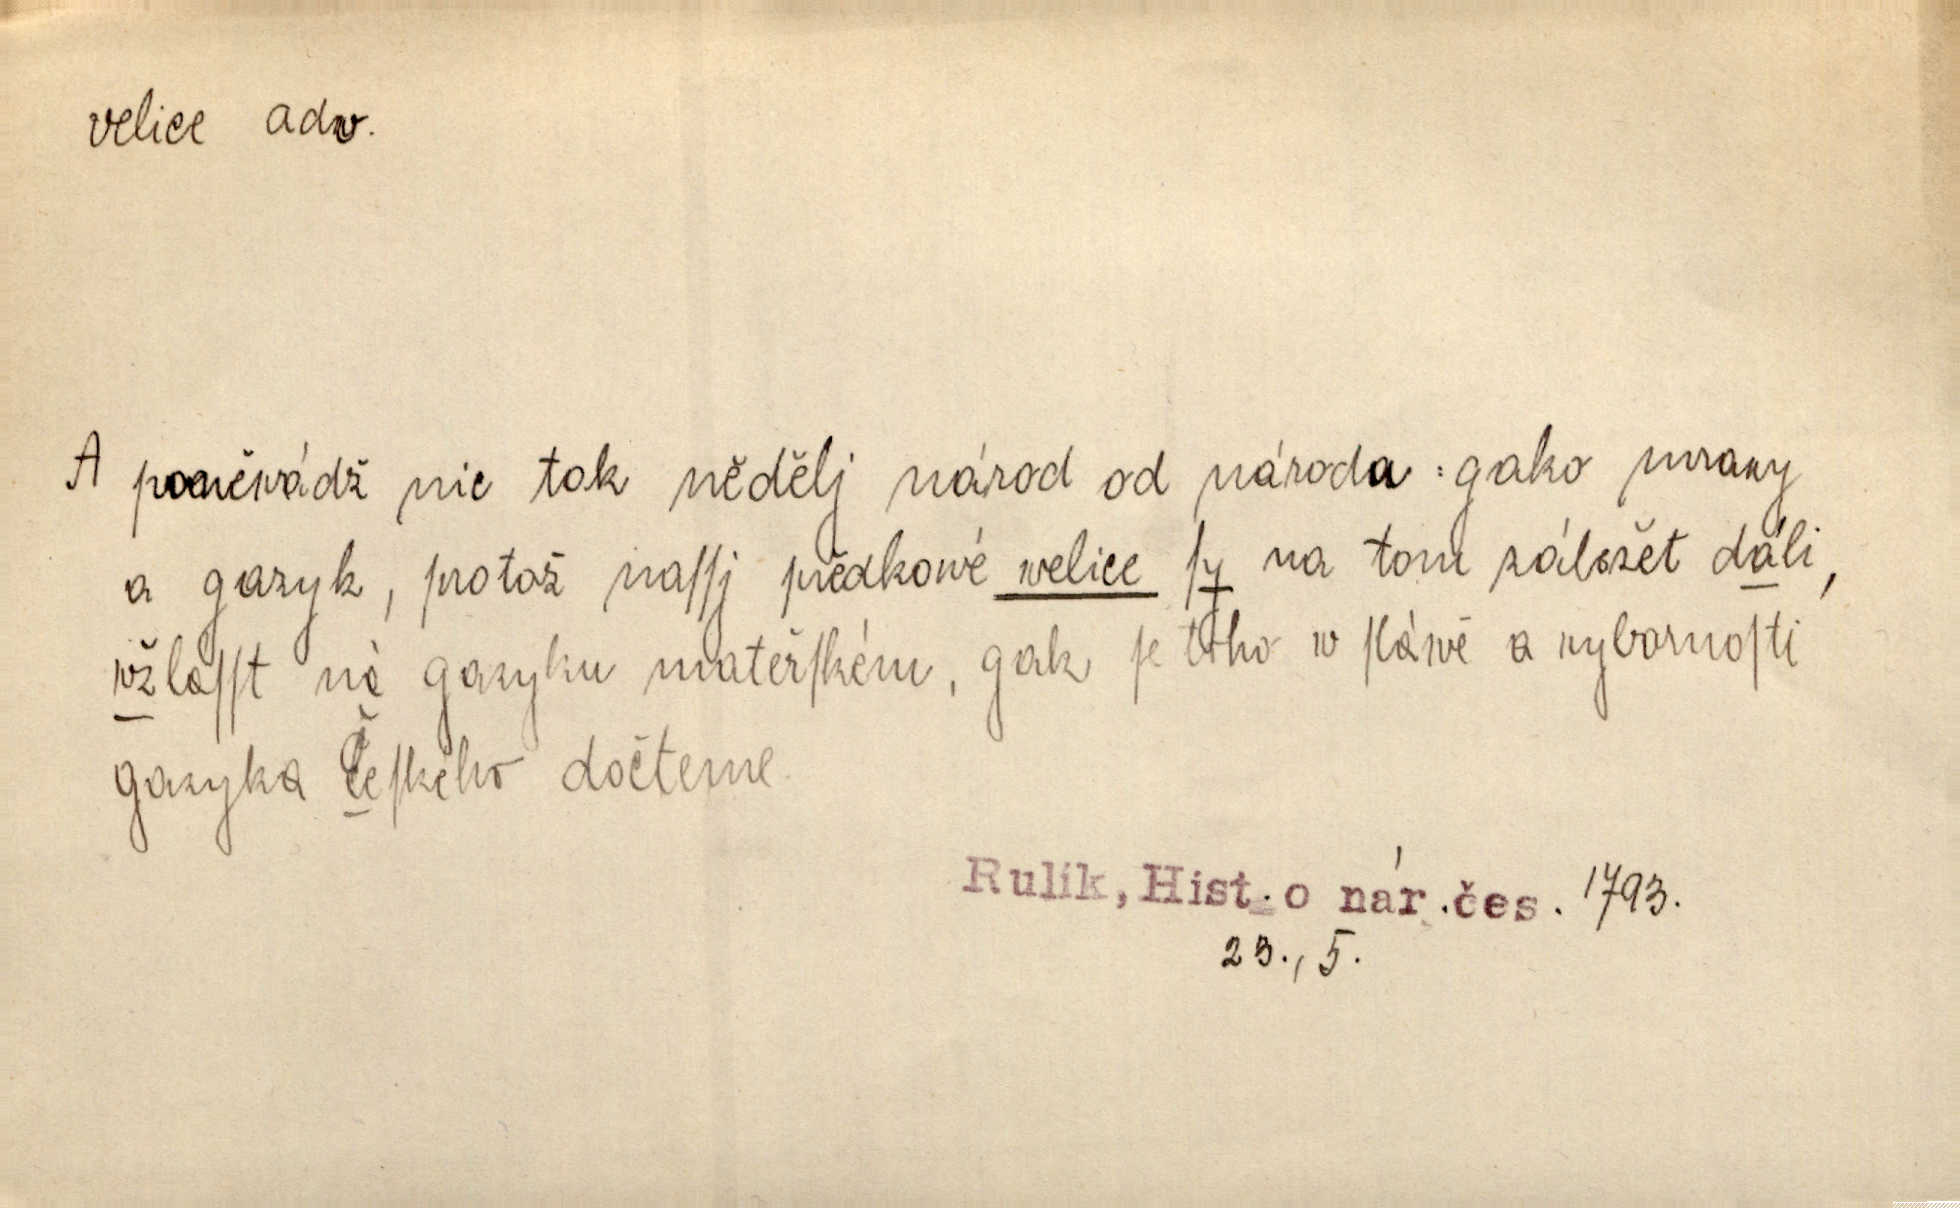 velice adv.
A poněwádž nic tak nědělj národ od národa: gako mrawy
a gazyk, protož naſſj předkowé welice ſy na tom záležet dáli,
wžláſſt na gazyku mateřſkém, gak ſe toho w ſláwě a wybornoſti
gazyka Čeſkého dočteme
Rulík, Hist. o nár. čes. 1793.
23., 5.